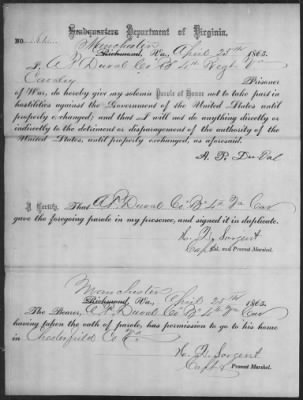 Headquarters Department of Virginia.
No.
Manchester
Richmond, Va., April 25th 1865.
I, A P Duval Co "B" 4th Regt Va
Cavalry Prisoner
of War, do hereby give my solemn Parole of Honor not to take part in
hostilities against the Government of the United States until
properly exchanged; and that I will not do anything directly or
indirectly to the detriment or disparagement of the authority of the
United States, until properly exchanged, as aforesaid.
A. P. Du Val
I Certify, That A P Duval Co "B" 4th Va Cav
gave the foregoing parole in my presence, and signed it in duplicate.
Sargent
Capt & and Provost Marshal.
Manchester
Richmond, Va., April 25th 1865.
The Bearer, A P Duval Co "B" 4th Va Cav
having taken the oath of parole, has permission to go to his home
in Chesterfield Co
Sargent
Capt & Provost Marshal.